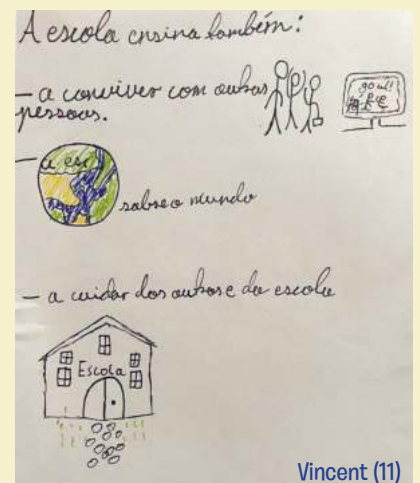 A escola ensina também:
— a conviver com outras
pessoas.
goal!
— a esc
sobre o mundo
— a cuidar dos outros e da escola
Escola
Vincent (11)